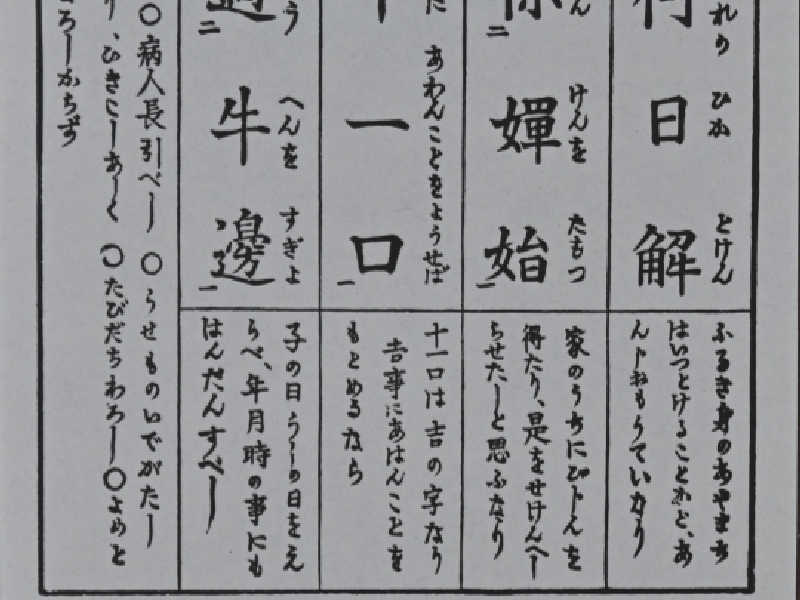 れの ひか とけん
日解
ふるき身のあやまち
はいつとけることかと、あ
んじわもうていなり
けんを たもつ
嬋始
二
一
家のうちにびじんを
得たり、是をせけんへし
らせたしと思ふなり
あわんことをようせば
一口
一
十一口は吉の字なり
吉事にあはんことを
もとめるなら
う へんを すぎよ
牛邊
二
一
子の日うしの日をえ
らべ、年月時の事にも
はんだんすべし
〇病人長引べし 〇うせものいでがたし
ひきこし 〇たびだちわろし〇よめと
ろしからず